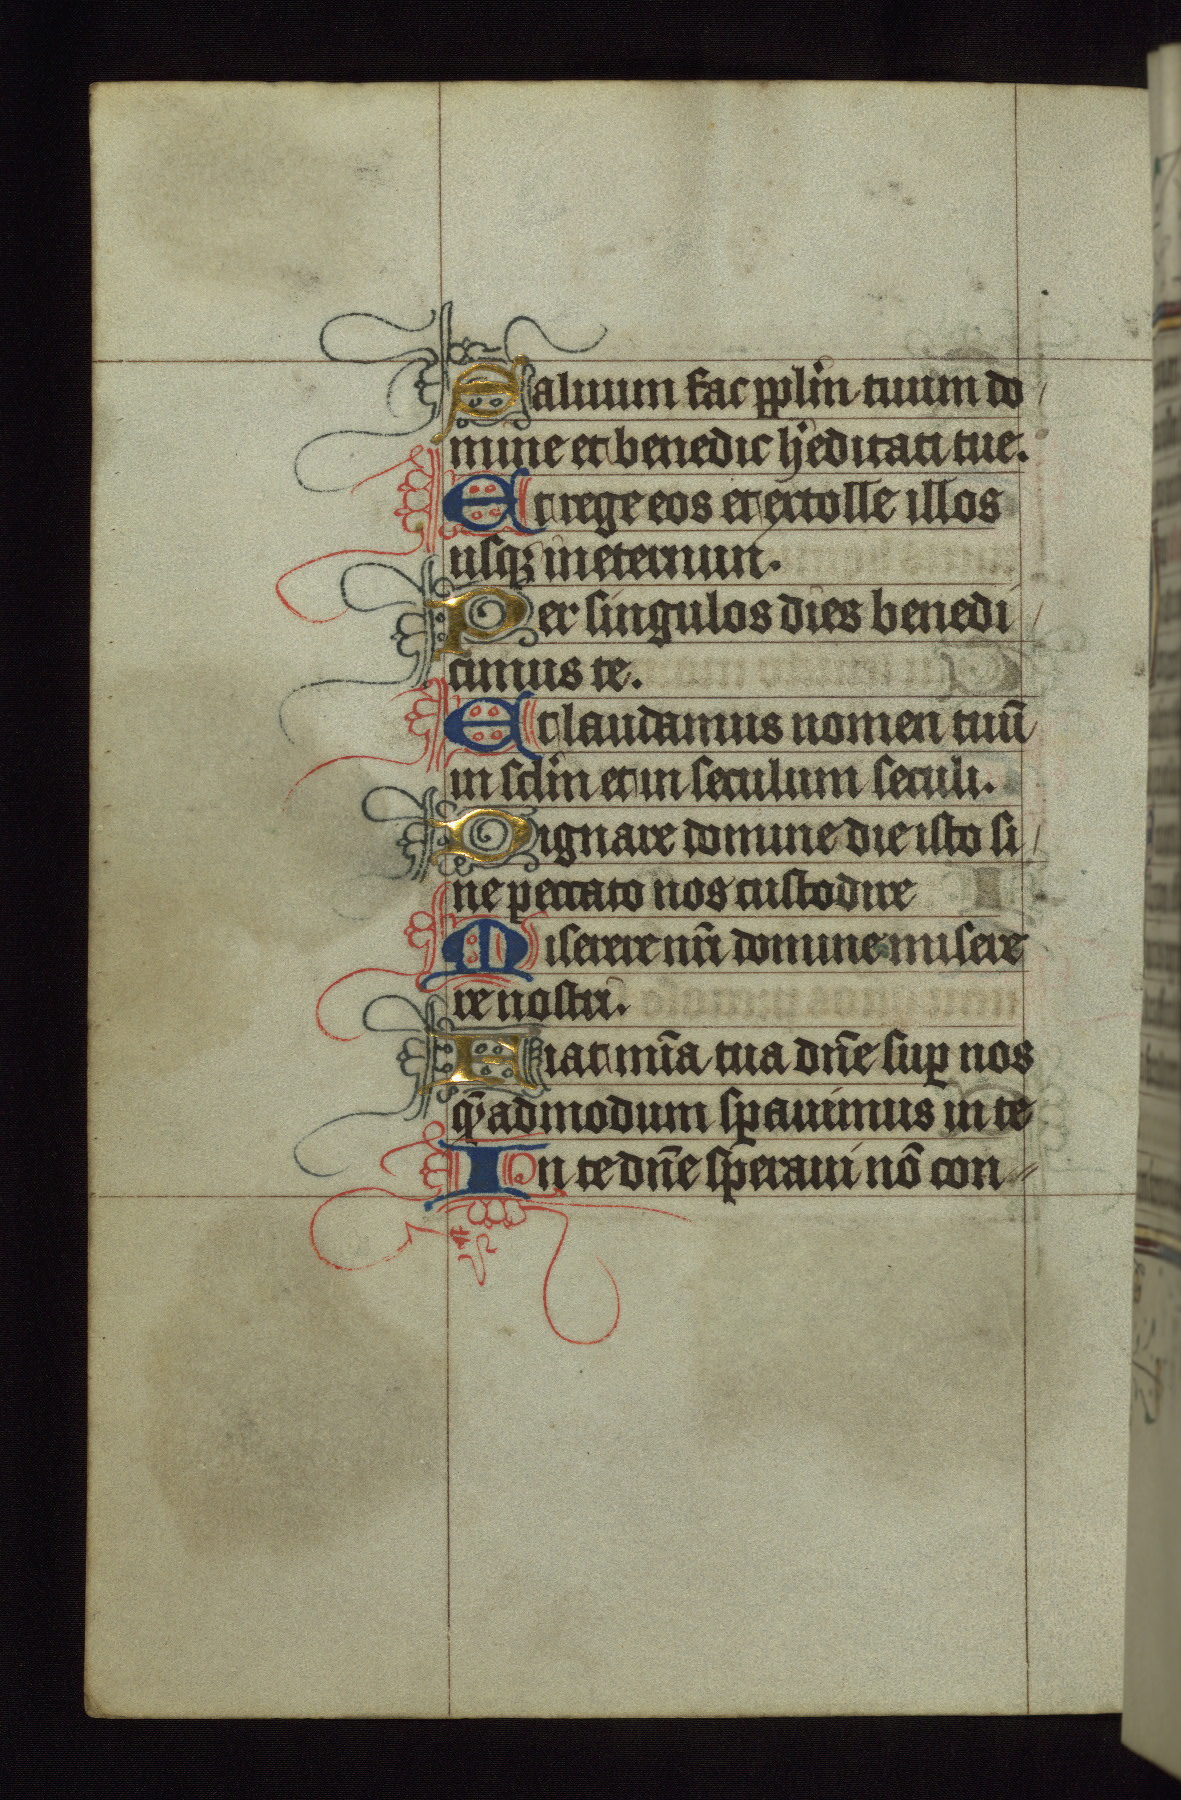 Saluum fac pplm̄ tuum do
mine et benedic hereditati tue.
Et rege eos et extolle illos
usq; in eternum.
Per singulos dies benedi
cimus te.
Et laudamus nomen tuū
in sclm̄ et in seculum seculi.
Dignare domine die isto si
ne peccato nos custodire
Miserere nr̄i domine misere
re nostri.
Fiat mīa tua dn̄e suꝑ nos
qm̄admodum sꝑauimus in te
In te dn̄e speraui nō con